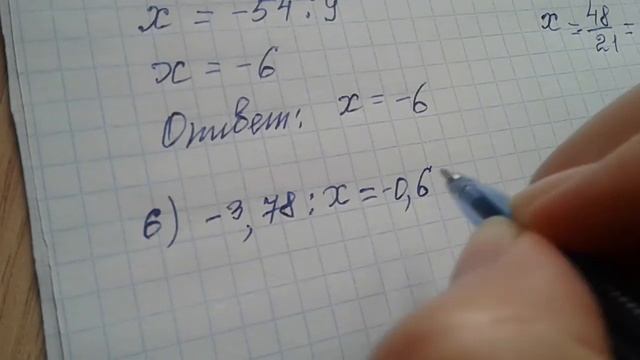 x = -54 : 9
x = -6
Ответ: x = -6
б) -3,78 : x = -0,6
x = 48/21 =